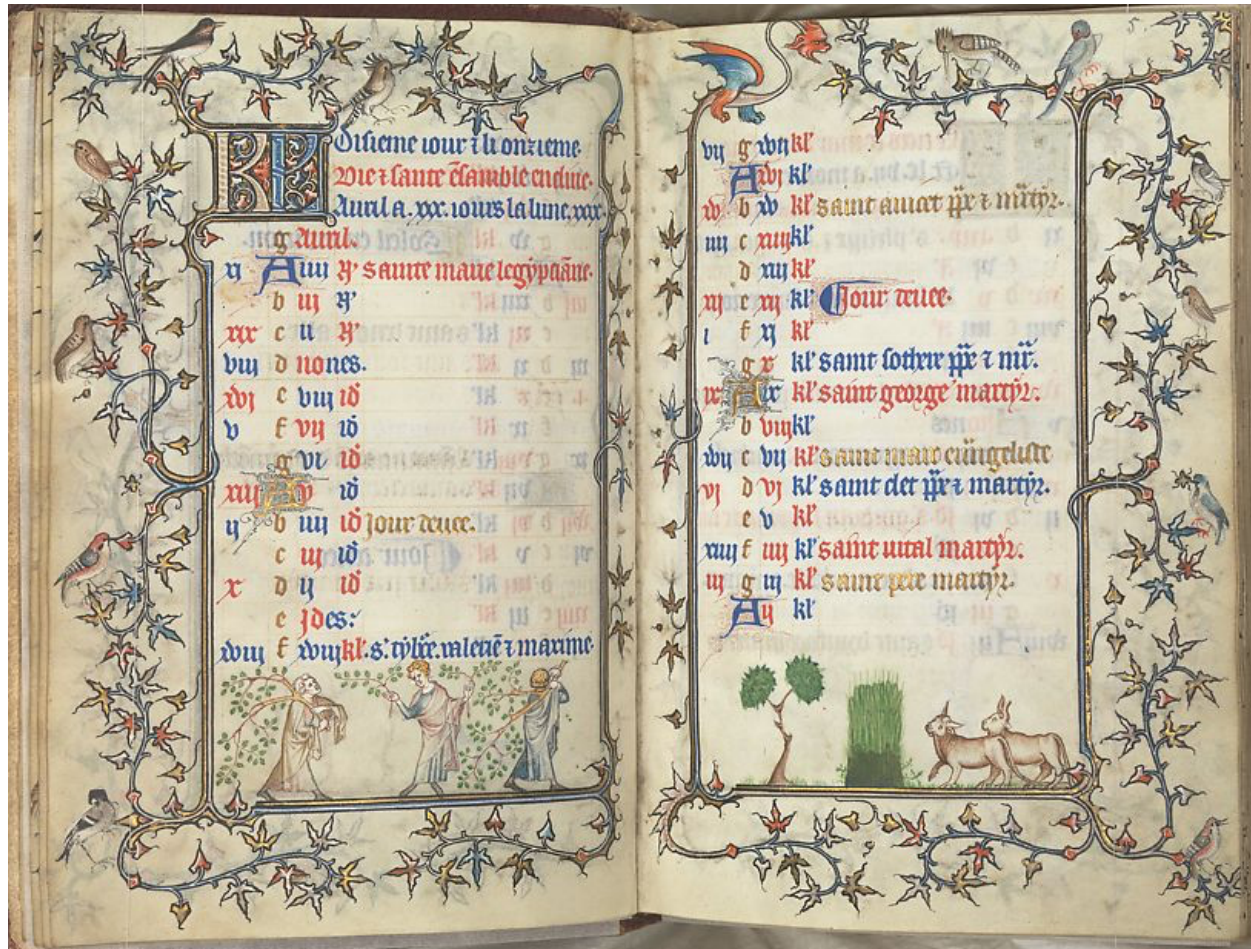 KL Disieme iour ⁊ li onzieme.
Vie ⁊ sante ensamble en duie.
Auril a .xxx. iours la lune .xxx.
g auril.
xi A iiii N' sainte marie legyptiane.
b iii N'
xix c ii N'
viii d nones.
xvi e viii id
v f vii id
g vi id
xiii A v id
ii b iiii id Jour deuee.
c iii id
x d ii id
e Jdes.
xviii f xviii kl'. s. valerie ⁊ maxime
vii g xvii kl'
A xvi kl'
xv b xv kl' saint anicet pp̄e ⁊ martyr.
iiii c xiiii kl'
d xiii kl'
xii e xii kl' Jour deuee.
i f xi kl'
g x kl' saint sothere pp̄e ⁊ mr̄.
ix A ix kl' saint george martyr.
b viii kl'
xvii c vii kl' saint marc euūngeliste
vi d vi kl' saint clet pp̄e ⁊ martyr.
e v kl'
xiiii f iiii kl' saint uital martyr.
iii g iii kl' saint pere martyr.
A ii kl'